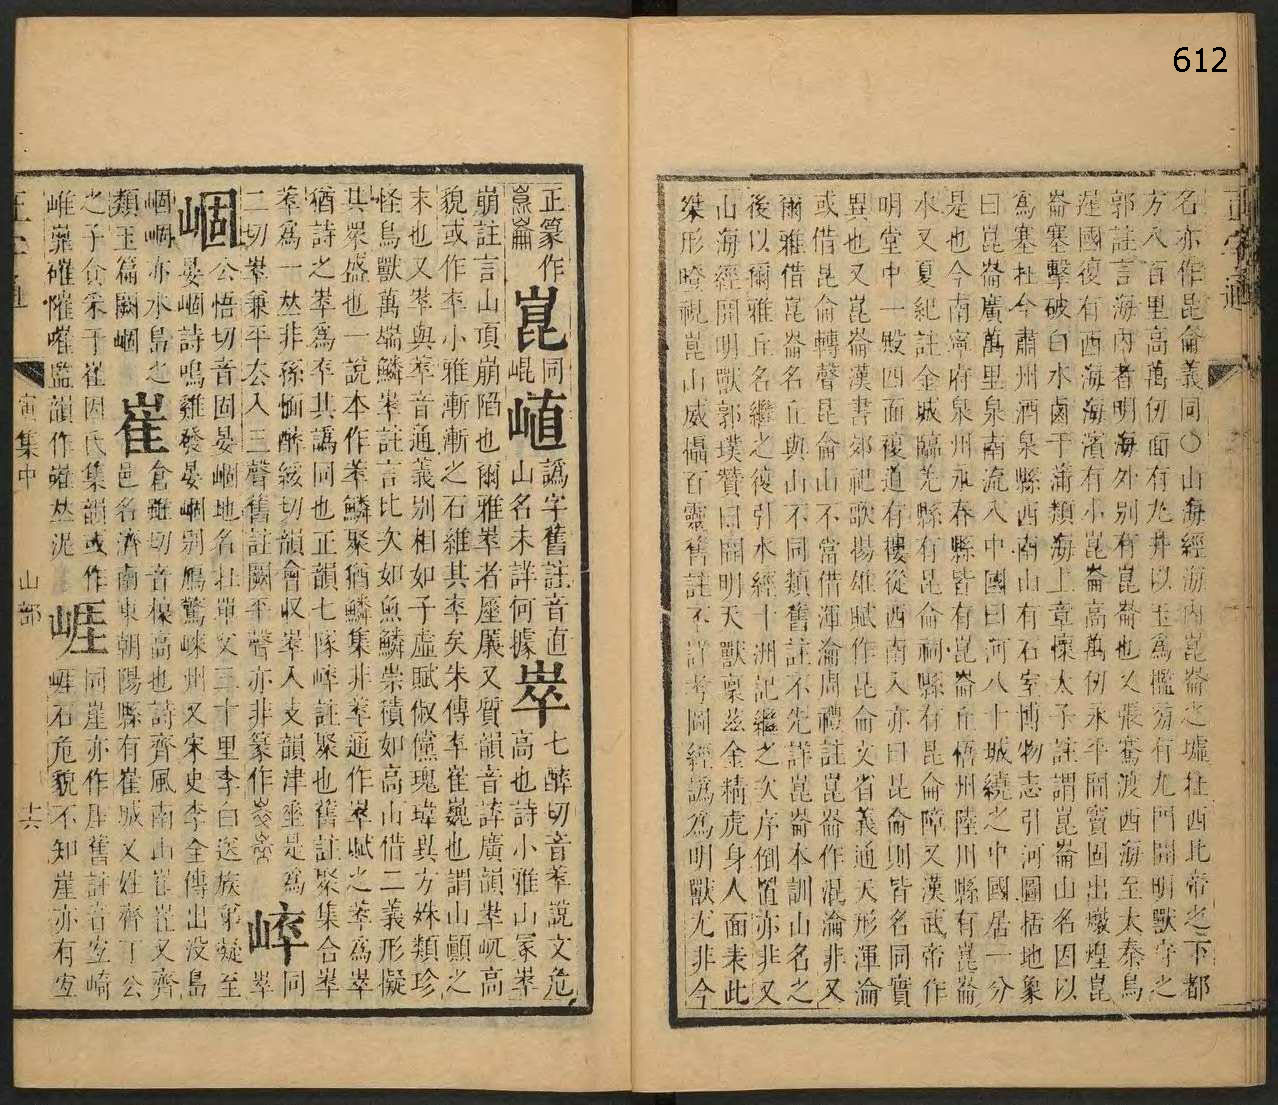 612
正字通
名亦作昆侖義同○山海經海內崑崙之墟在西北帝之下都
方八百里高萬仞面有九井以玉爲檻旁有九門開明獸守之
郭註言海內者明海外别有崑崙也又張騫渡西海至大秦烏
遲國復有西海海濱有小崑崙高萬仞永平間竇固出燉煌崑
崙塞擊破白水鹵于蒲類海上章懷太子註謂崑崙山名因以
爲塞在今肅州酒泉縣西南山有石室博物志引河圖括地象
曰崑崙廣萬里泉南流入中國曰河八十城繞之中國居一分
是也今南寧府泉州永春縣皆有崑崙丘梧州陸川縣有崑崙
水又夏紀註金城臨羌縣有昆侖祠縣有昆侖障又漢武帝作
明堂中一殿四面複道有樓從西南入亦曰昆侖則皆名同實
異也又崑崙漢書郊祀歌揚雄賦作昆侖文省義通天形渾淪
或借昆侖轉聲昆侖山不當借渾淪周禮註崑崙作混淪非又
爾雅借崑崙名丘與山不同類舊註不先詳崑崙本訓山名之
後以爾雅丘名繼之復引水經十洲記繼之次序倒置亦非又
山海經開明獸郭璞贊曰開明天獸稟茲金精虎身人面表此
桀形瞪視崑山威懾百靈舊註不詳考圖經譌爲明獸尤非今
正篆作
崑 同崐
崸 譌字舊註音直山名未詳何據
崒 七醉切音萃說文危高也詩小雅山冢崒
崩註言山頂崩陷也爾雅崒者厜㕒又質韻音誶廣韻崒屼高
貌或作卒小雅漸漸之石維其卒矣朱傳卒崔巍也謂山顚之
末也又崒與萃音通義别相如子虛賦俶儻瑰瑋異方姝類珍
怪鳥獸萬端鱗崒註言比次如魚鱗崇積如高山借二義形擬
其衆盛也一說本作萃鱗聚猶鱗集非萃通作崒賦之萃爲崒
猶詩之崒爲卒其譌同也正韻七隊崪註聚也舊註聚集合崒
萃爲一𠀤非孫愐醉綏切韻會收崒入支韻津垂是爲
二切崒兼平去入三聲舊註闕平聲亦非篆作
崪 同崒
崓 公悟切音固晏崓地名杜單父三十里李白送族弟凝至
晏崓詩鳴雞發晏崓别鴈驚崍州又宋史李全傳出沒島
崓崓亦水島之類玉篇闕崓
崔 倉雖切音榱高也詩齊風南山崔崔又齊
邑名濟南東朝陽縣有崔城又姓齊丁公
之子食采于崔因氏集韻或作
嵟嶵磪㠑嗺監韻作嶊𠀤泥
崕 同崖亦作厓舊註音宜崎
崕石危貌不知崖亦有宜
寅集中
山部
十六